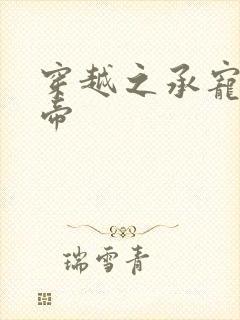 穿越之承寵
帝
瑞雪青